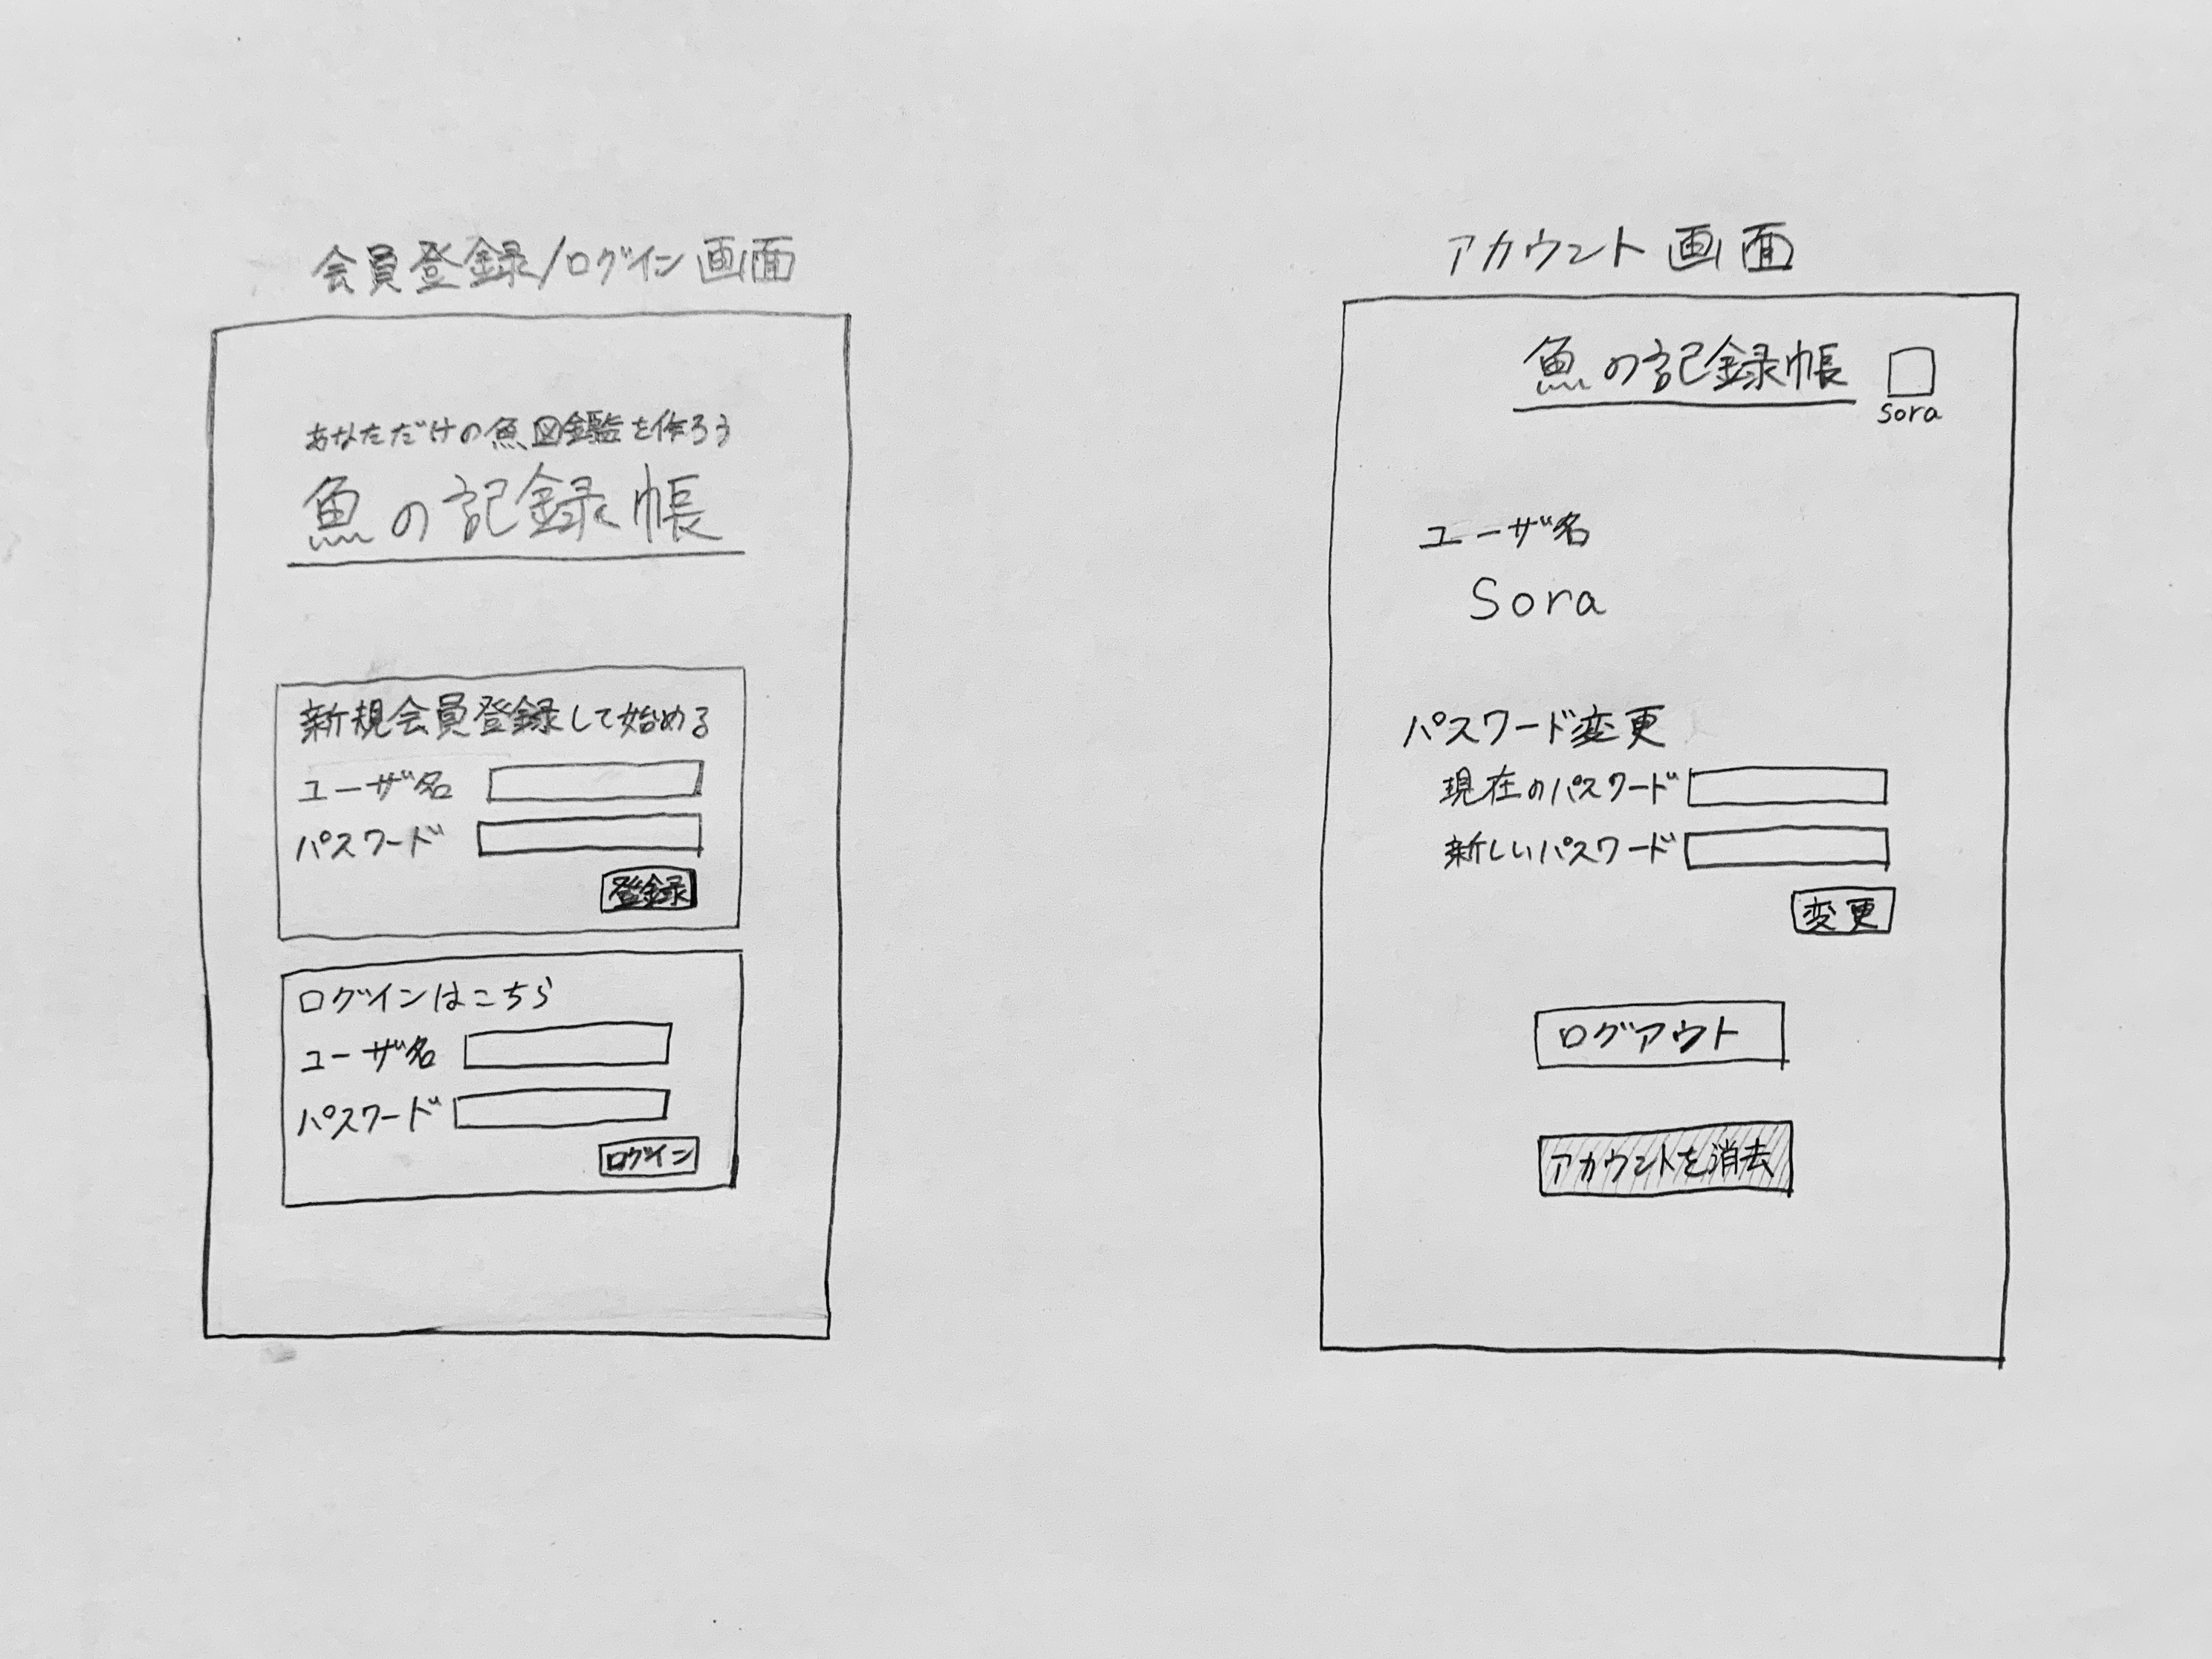 会員登録/ログイン画面
あなただけの魚図鑑を作ろう
魚の記録帳
新規会員登録して始める
ユーザ名
パスワード
登録
ログインはこちら
ユーザ名
パスワード
ログイン
アカウント画面
魚の記録帳
sora
ユーザ名
Sora
パスワード変更
現在のパスワード
新しいパスワード
変更
ログアウト
アカウントを消去